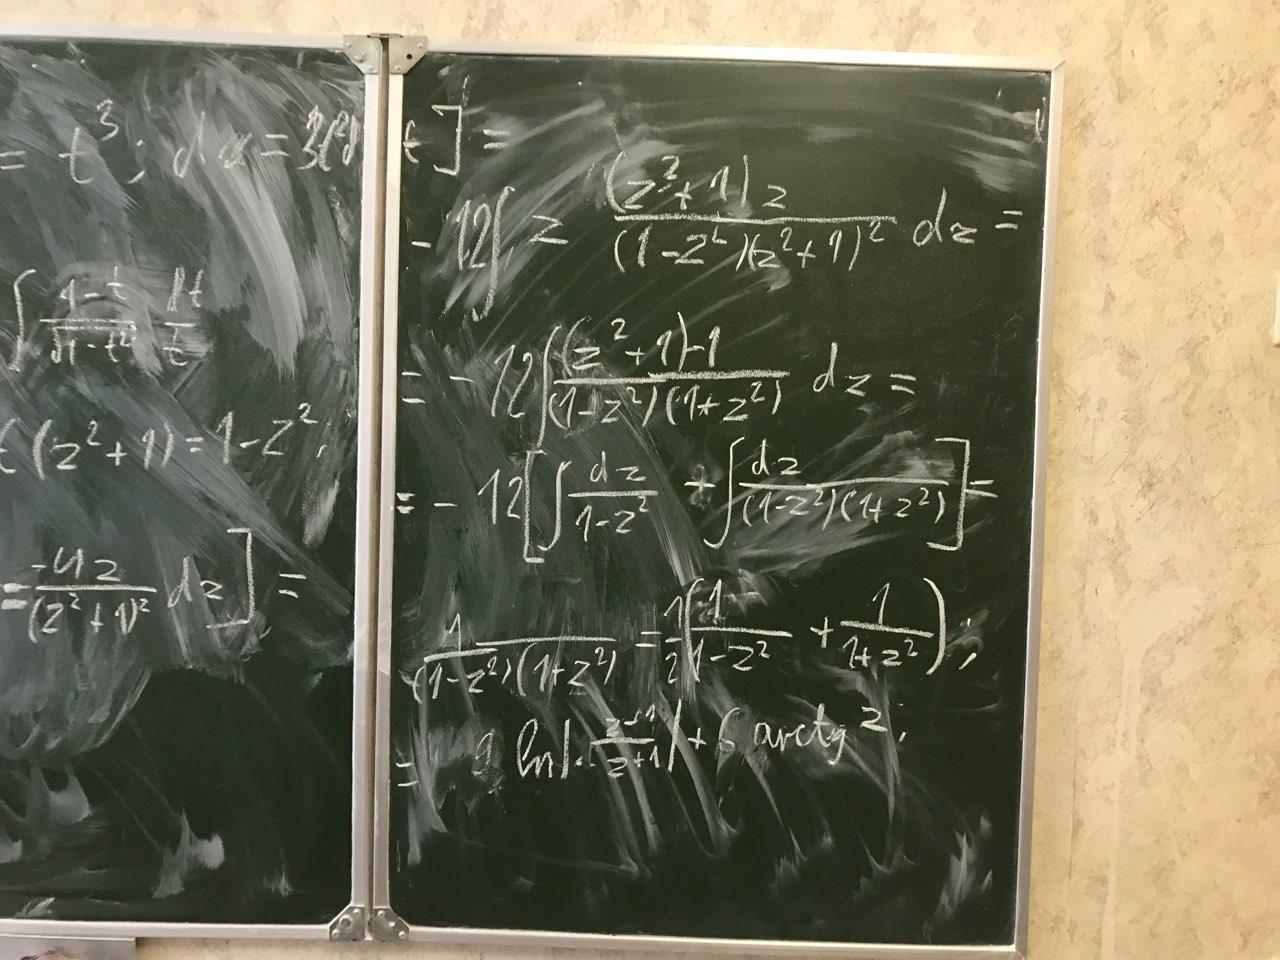 = t³; dx = 3t²dt] =
∫ (1-t)/√(1-t²) dt/t
t(z²+1) = 1-z²;
= -4z/(z²+1)² dz] =
- 12∫ z (z²+1)z/((1-z²)(z²+1)²) dz =
= - 12∫ ((z²+1)-1)/((1-z²)(1+z²)) dz =
= - 12[∫ dz/(1-z²) + ∫ dz/((1-z²)(1+z²))] =
1/((1-z²)(1+z²)) = 1/2(1/(1-z²) + 1/(1+z²));
= ln|(z-1)/(z+1)| + 6 arctg z;